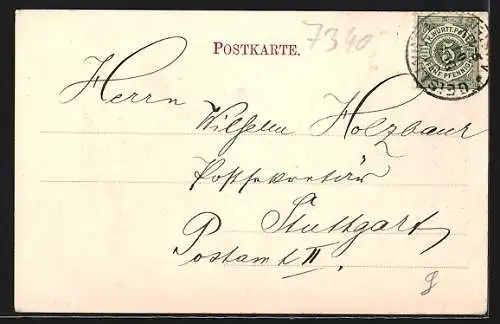 POSTKARTE.
7340
K. WÜRTT. POST
5
FÜNF PFENNIG
Herrn
Wilhelm Holzbaur
Postsekretär
Stuttgart
Postamt II.